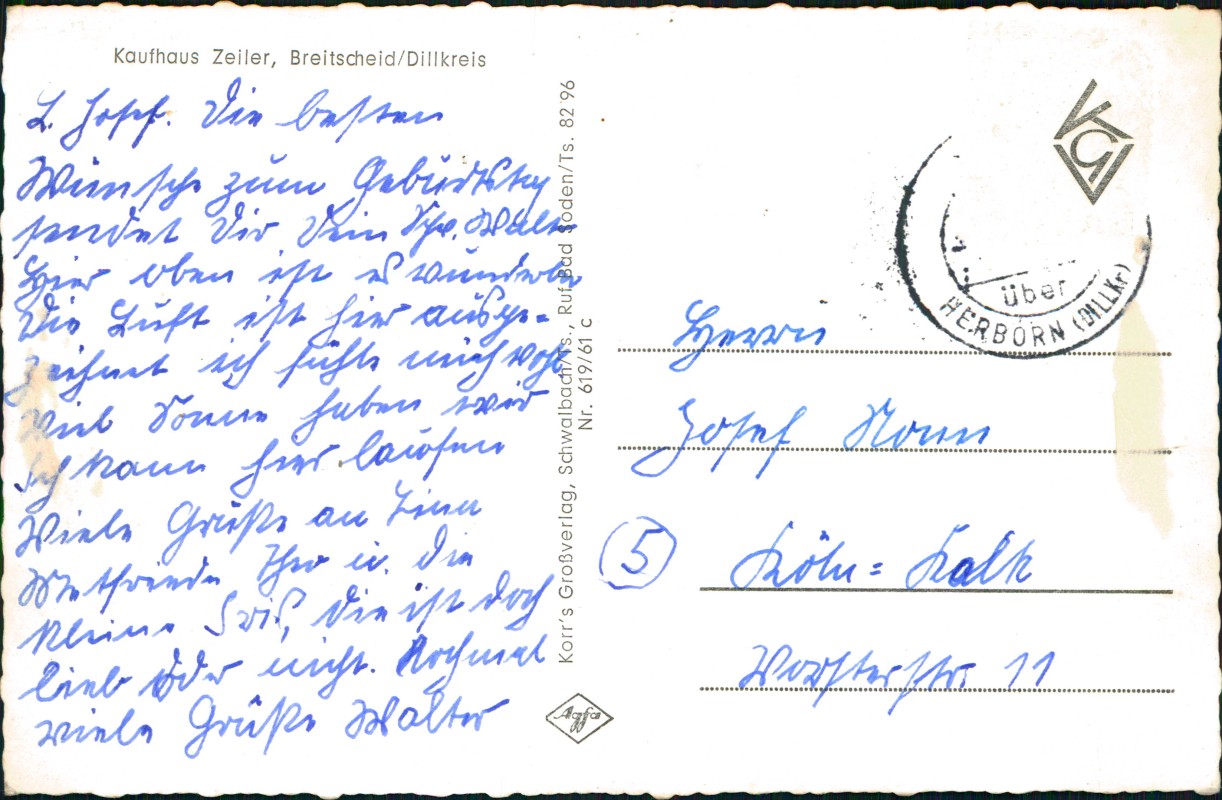 Kaufhaus Zeiler, Breitscheid/Dillkreis
L. Josef. Die besten
Wünsche zum Geburtstag
sendet Dir Dein Schw. Walter
Hier oben ist es wunderba
Die Luft ist hier ausge=
zeichnet ich fühle mich wohl
viel Sonne haben wir
Ich kann hier laufen
Viele Grüße an
u. die
kleine Iris, die ist doch
lieb oder nicht. Nochmal
viele Grüße Walter
Korr's Großverlag, Schwalbach/Ts., Ruf Bad Soden/Ts. 82 96
Nr. 619/61 c
Agfa
KG
über
HERBORN (DILLKr)
Herrn
Josef Nonn
5
Köln= Kalk
Vorsterstr. 11